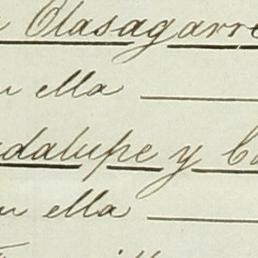 Olasagarre
en ella
adalupe y Ca
en ella